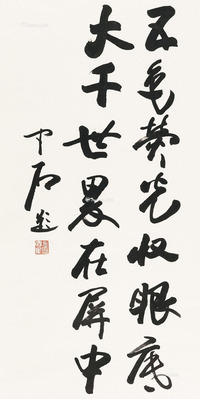 五色荧光收眼底
大千世界在屏中
中石题